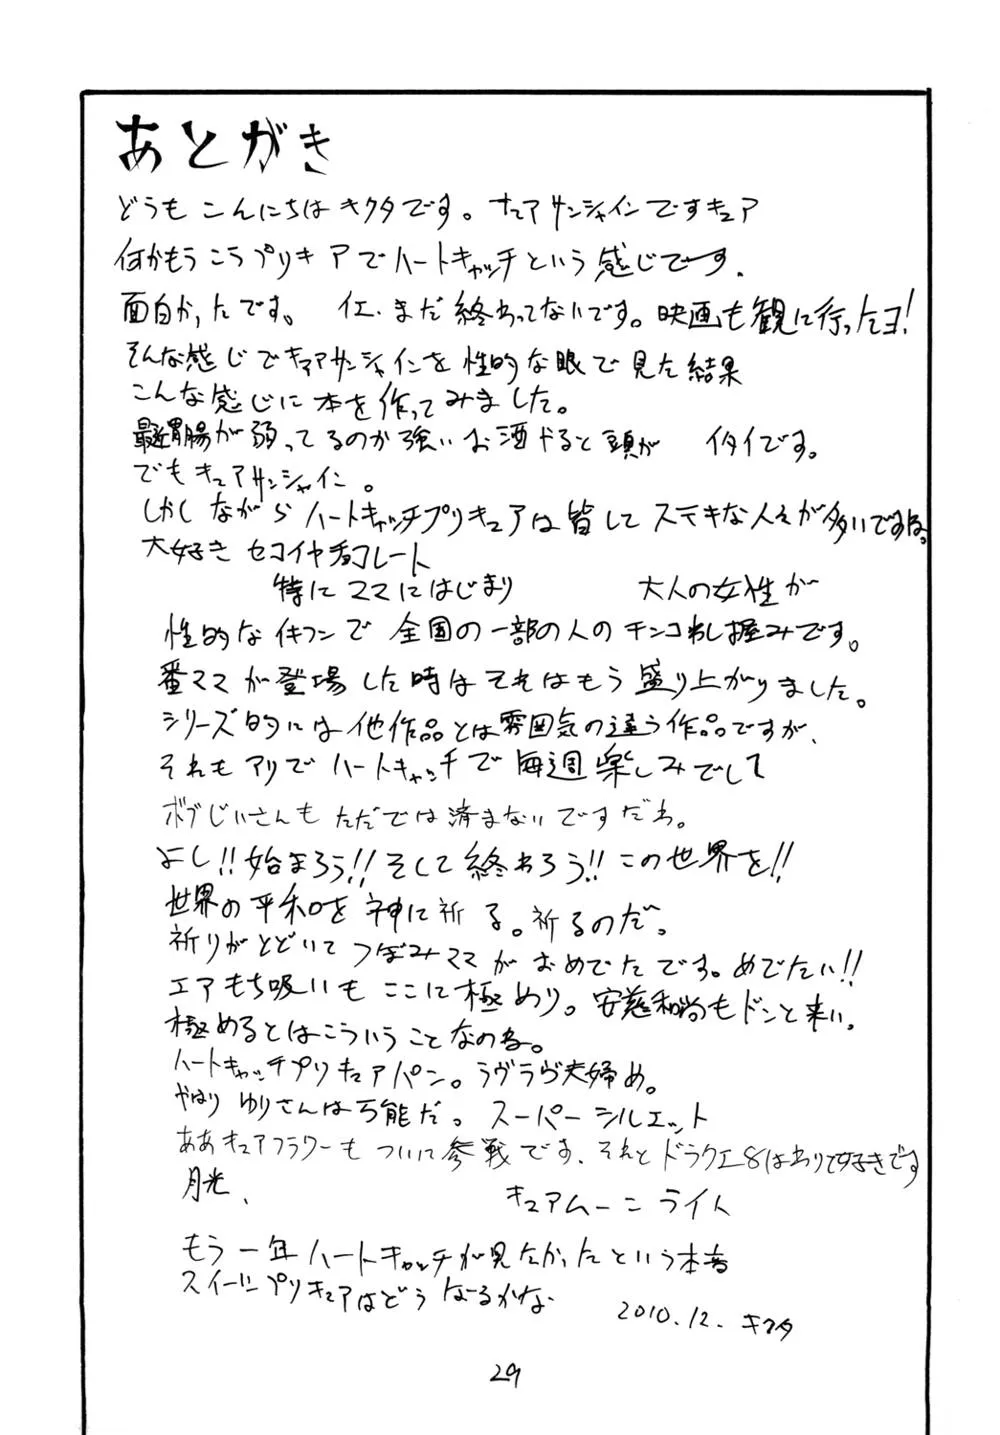 あとがき
どうもこんにちはキクタです。キュアサンシャインですキュア
何かもうこうプリキュアでハートキャッチという感じです。
面白かったです。 イエ、まだ終わってないです。映画も観に行ったヨ!
そんな感じでキュアサンシャインを性的な眼で見た結果
こんな感じに本を作ってみました。
最近胃腸が弱ってるのか強いお酒やると頭が イタイです。
でもキュアサンシャイン。
しかしながらハートキャッチプリキュアは皆してステキな人々が多いですね。
大好きセコイヤチョコレート
特にママにはじまり 大人の女性が
性的なイキフンで全国の一部の人のチンコわし掴みです。
番ママが登場した時はそれはもう盛り上がりました。
シリーズ的には他作品とは雰囲気の違う作品ですが、
それもアリでハートキャッチで毎週楽しみでして
ボブじいさんもただでは済まないですだわ。
よし!!始まろう!!そして終わろう!!この世界を!!
世界の平和を神に祈る。祈るのだ。
祈りがとどいてつぼみママがおめでたです。めでたい!!
エアもち吸いもここに極めり。安慈和尚もドンと来い。
極めるとはこういうことなのね。
ハートキャッチプリキュアパン。ラヴラヴ夫婦め。
やはりゆりさんは万能だ。スーパーシルエット
ああキュアフラワーもついに参戦です、それとドラクエ8はわりと好きです
月光、
キュアムーンライト
もう一年ハートキャッチが見たかったという本音
スイートプリキュアはどうなるかな
2010.12. キクタ
29